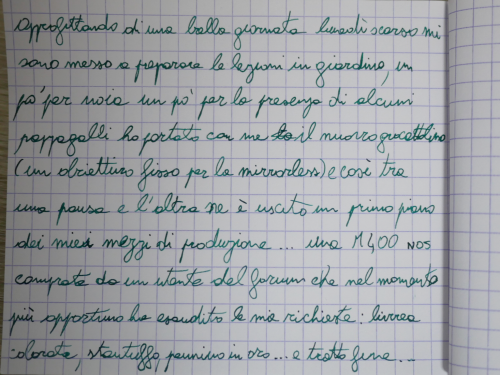 approfittando di una bella giornata lunedì scorso mi
sono messo a preparare le lezioni in giardino, un
pò per noia un pò per la presenza di alcuni
pappagalli ho portato con me il nuovo giocattolino
(un obiettivo fisso per la mirrorless) e così tra
una pausa e l'altra ne è uscito un primo piano
dei miei mezzi di produzione... una M400 NOS
comprata da un utente del forum che nel momento
più opportuno ha esaudito le mie richieste: livrea
colorata, stantuffo, pennino in oro... e tratto fine...